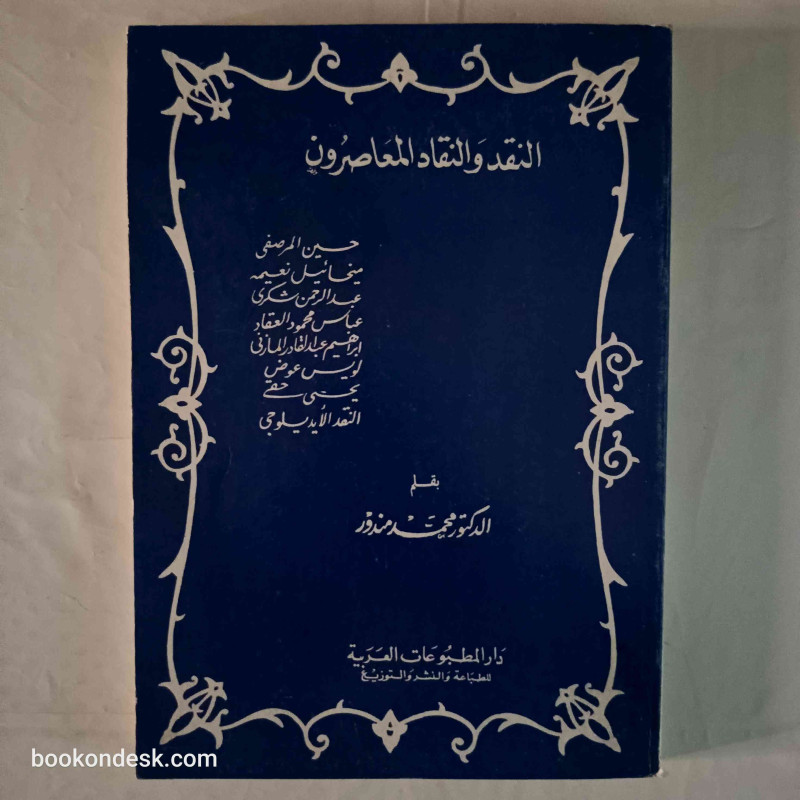 النقد والنقاد المعاصرون
حسين المرصفى
ميخائيل نعيمه
عبد الرحمن شكرى
عباس محمود العقاد
ابراهيم عبد القادر المازنى
لويس عوض
يحيى حقى
النقد الأيديلوجى
بقلم
الدكتور محمد مندور
دار المطبوعات العربية
للطباعة والنشر والتوزيع
bookondesk.com